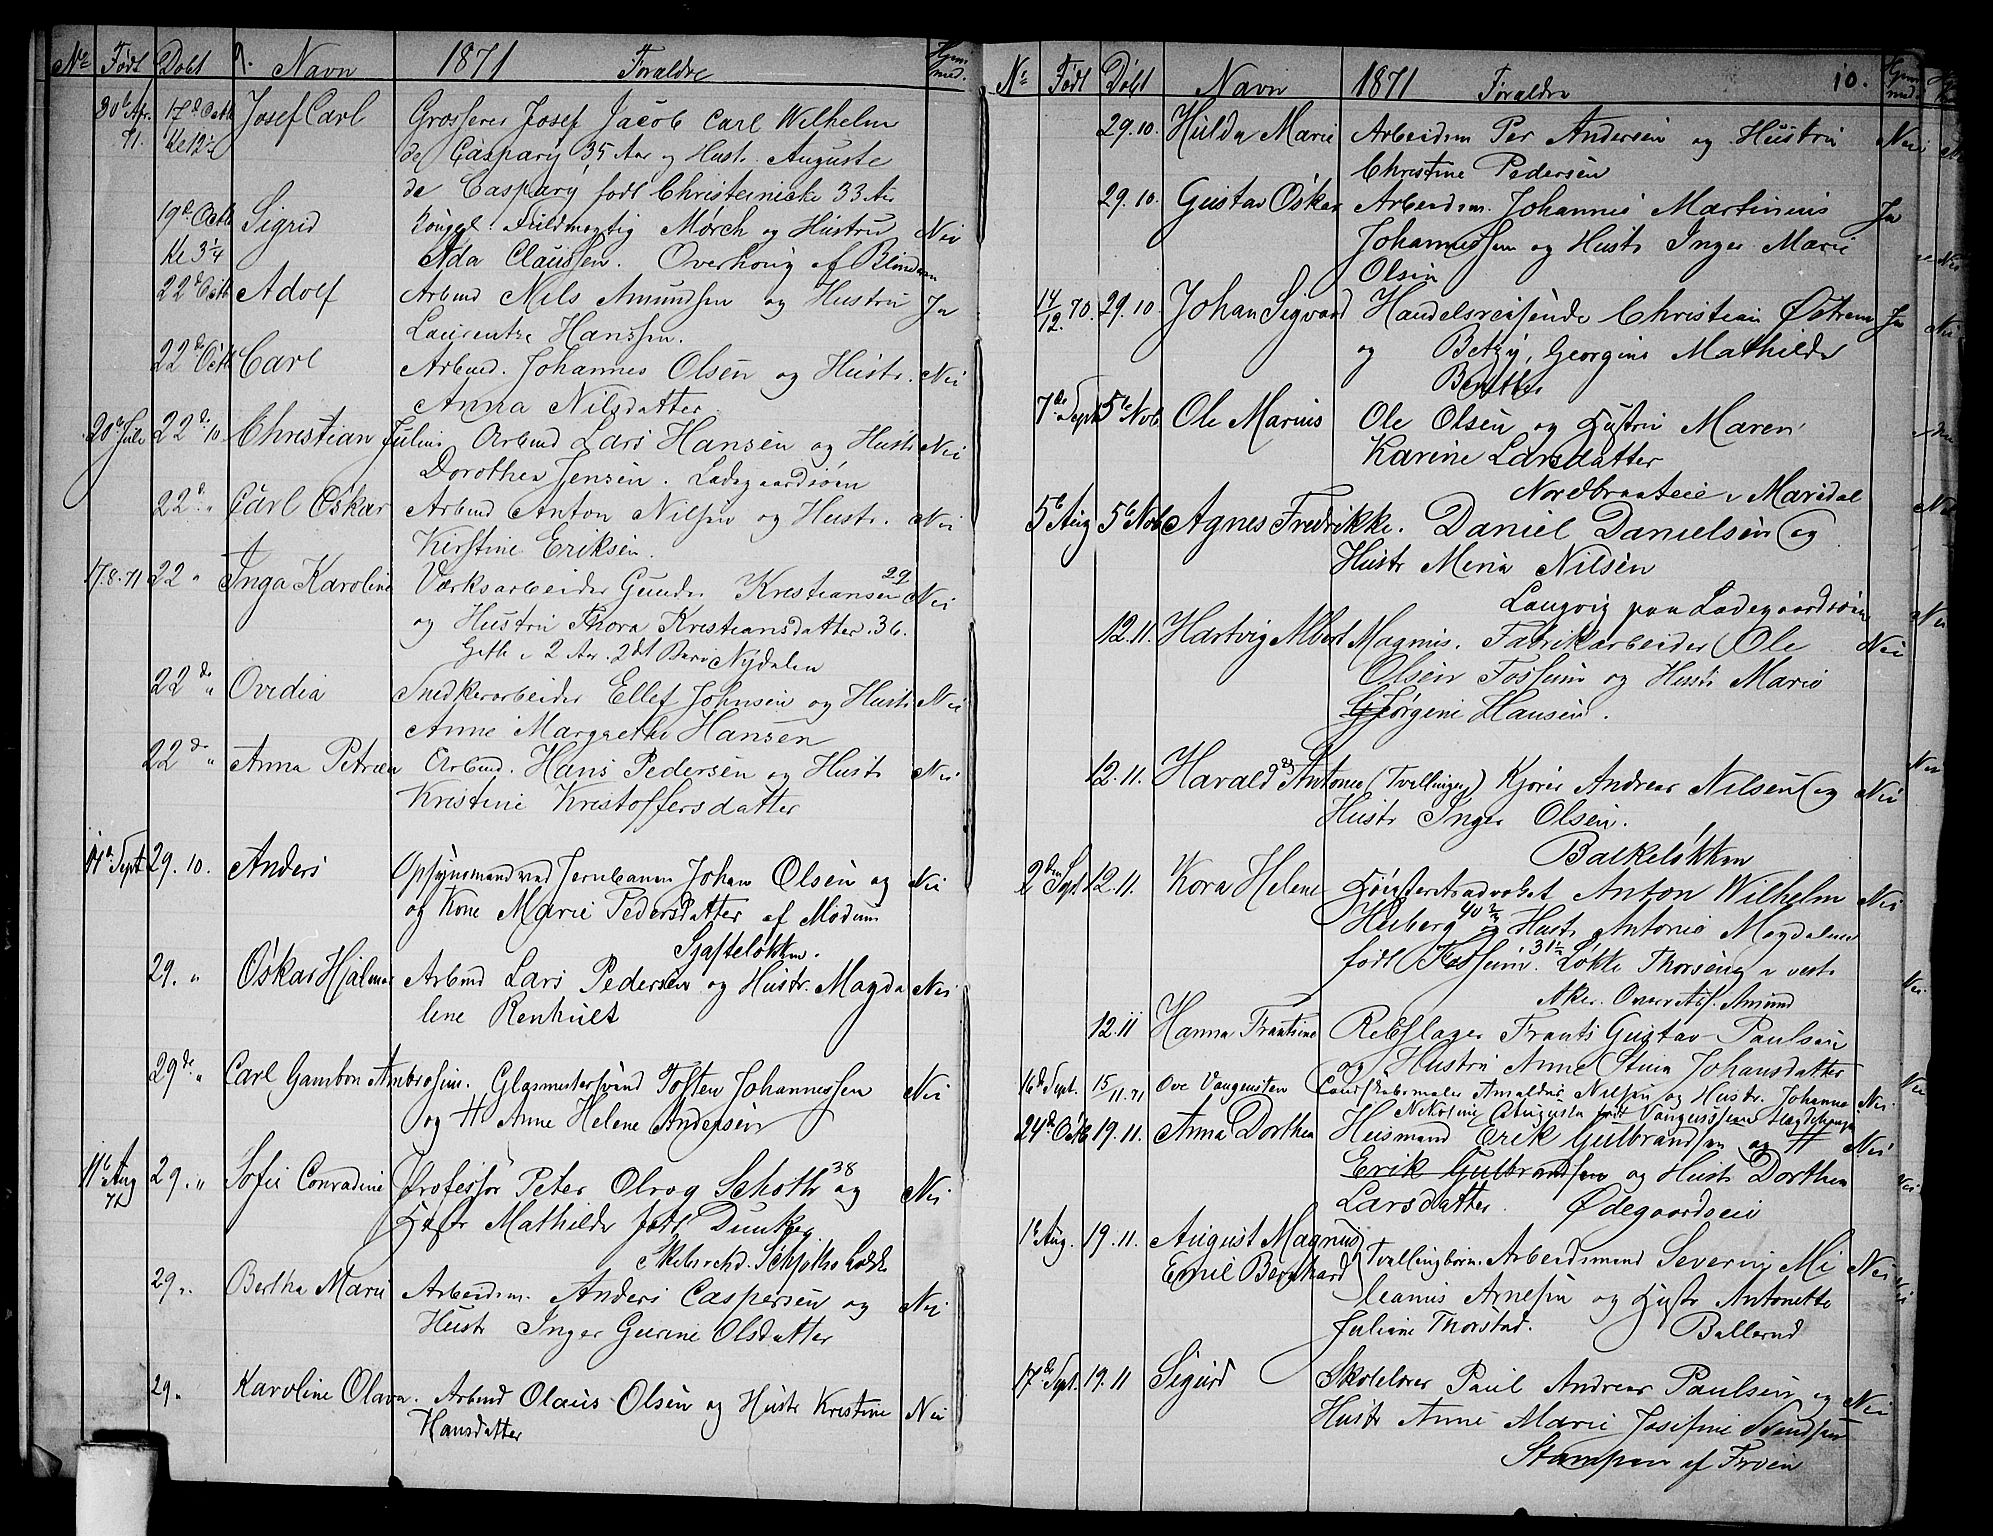 No Født Døbt 9. Navn 1871 Forældre Hjem med.
30te Apr. 71. 17de Octb Kl 12½ Josef Carl Grosserer Josef Jacob Carl Wilhelm
de Caspary 35 Aar og Hustr. Auguste
de Caspary født Christeinicke 33 Aar
19de Octb Kl 3¼ Sigrid Kongel. Fuldmægtig Mørch og Hustru Nei
Ada Claussen. Overkong af Blindern
22de Octb Adolf Arbmd Nils Amundsen og Hustru Ja
Laurentze Hanssen.
22de Octb Carl Arbmd. Johannes Olsen og Hustr. Nei
Anna Nilsdatter
20de Juli 22de 10. Christian Julius Arbmd Lars Hansen og Hustr Nei
Dorothea Jensen. Ladegaardsøen
22d. " Carl Oskar Arbmd Anton Nilsen og Hustr. Nei
Kirstine Eriksen.
17.8.71 22 " Inga Karoline Værksarbeider Gunder Kristiansen 29 Nei
og Hustru Thora Kristiansdatter. 36.
Gift i 2 Aar. 2det Barn Nydalen
22de " Ovedia Snedkerarbeider Ellef Johnsen og Hustr Nei
Anne Margrethe Hansen
22de " Anna Petrea Arbmd. Hans Pedersen og Hustr Nei
Kristine Kristoffersdatter
14de Sept 29. 10. Anders Opsynsmand ved Jernbanen Johan Olsen og Nei
og Kone Marie Pedersdatter af Modum
Gjasteløkken.
29. " Oskar Hjalmar Arbmd Lars Pedersen og Hustr. Magda Nei
lene Renhult
29de " Carl Gambon Ambrosius. Glasmestersvend Tosten Johannessen Nei
og H Anne Helene Andersen
11te Aug 71 29. " Sofie Conradine Professor Peter Olrog Schøtt 38 og Nei
Hustr Mathilde født Dunker
Skibsrehd. Schjøtts Løkke
29 ". Bertha Marie Arbeidsm. Anders Caspersen og Nei
Hustr Inger Gurine Olsdatter
29 " Karoline Olava. Arbmd Olaus Olsen og Hustr Kristine Nei
Hansdatter
No Født Døbt Navn 1871 Forældre 10. Hjem med.
29. 10. Hulda Marie Arbeidsm Per Andersen og Hustru Nei
Christine Pedersen
29. 10. Gustav Oskar Arbeidsm. Johannes Martinius Ja
Johannessen og Hustr Inger Marie
Olsen
14/12. 70. 29. 10 Johan Sigvard Handelsreisende Christian Østrem Ja
og Betzy, Georgine Mathilde
Berntter
7de Sept 5te Nob Ole Marius Ole Olsen og Hustru Maren
Karine Larsdatter
Nordbraateie i Maridal
5te Aug 5te Nob Agnes Fredrikke. Daniel Danielsen og
Hustr Meria Nilsen
Langvig paa Ladegaardsøen
12. 11. Hartvig Albert Magnus. Fabrikarbeider Ole Nei
Olsen Fossum og Hustr Marie
Jørgene Hansen.
12. 11. Harald & Antonie (Tvillinger) Kjører Andreas Nilsen og Nei
Hustr Inger Olsen.
Balkeløkken
2den Sept. 12. 11. Kora Helene Høiesteretsadvokat Anton Wilhelm Nei
Heiberg 40 og Hustr Antonie Magdalene
født Fossum. 31½ Løkke Thorseng i vest
Aker.
12. 11 Hanna Frantsine Rebslager Frants Gustav Paulsen
og Hustru Anne Stina Johansdatter
16de Sept. 15/11.71 Ove Vangensten Cand. Amaldus Nielsen og Hustr. Johanne Nei.
Nikoline Augusta født Vangensten
24de Octb 19. 11. Anna Dorthea Husmand Erik Gulbrandsen og H Nei
Erik Gulbrandsen og Hustr Dorthea
Larsdatter. Ødegaardseie
1te Aug. 19. 11. August Magnus
Emil Bernhard Tvillingbørn. Arbeidsmand Severin Mi Nei
leanius Arnesen og Hustr Antonette
Juliane Thorstad. Ballerud
17de Sept. 19. 11 Sigurd Skolelærer Paul Andreas Paulsen og Nei
Hustr Anne Marie Josefine Svendsen
Stampen af Frøen